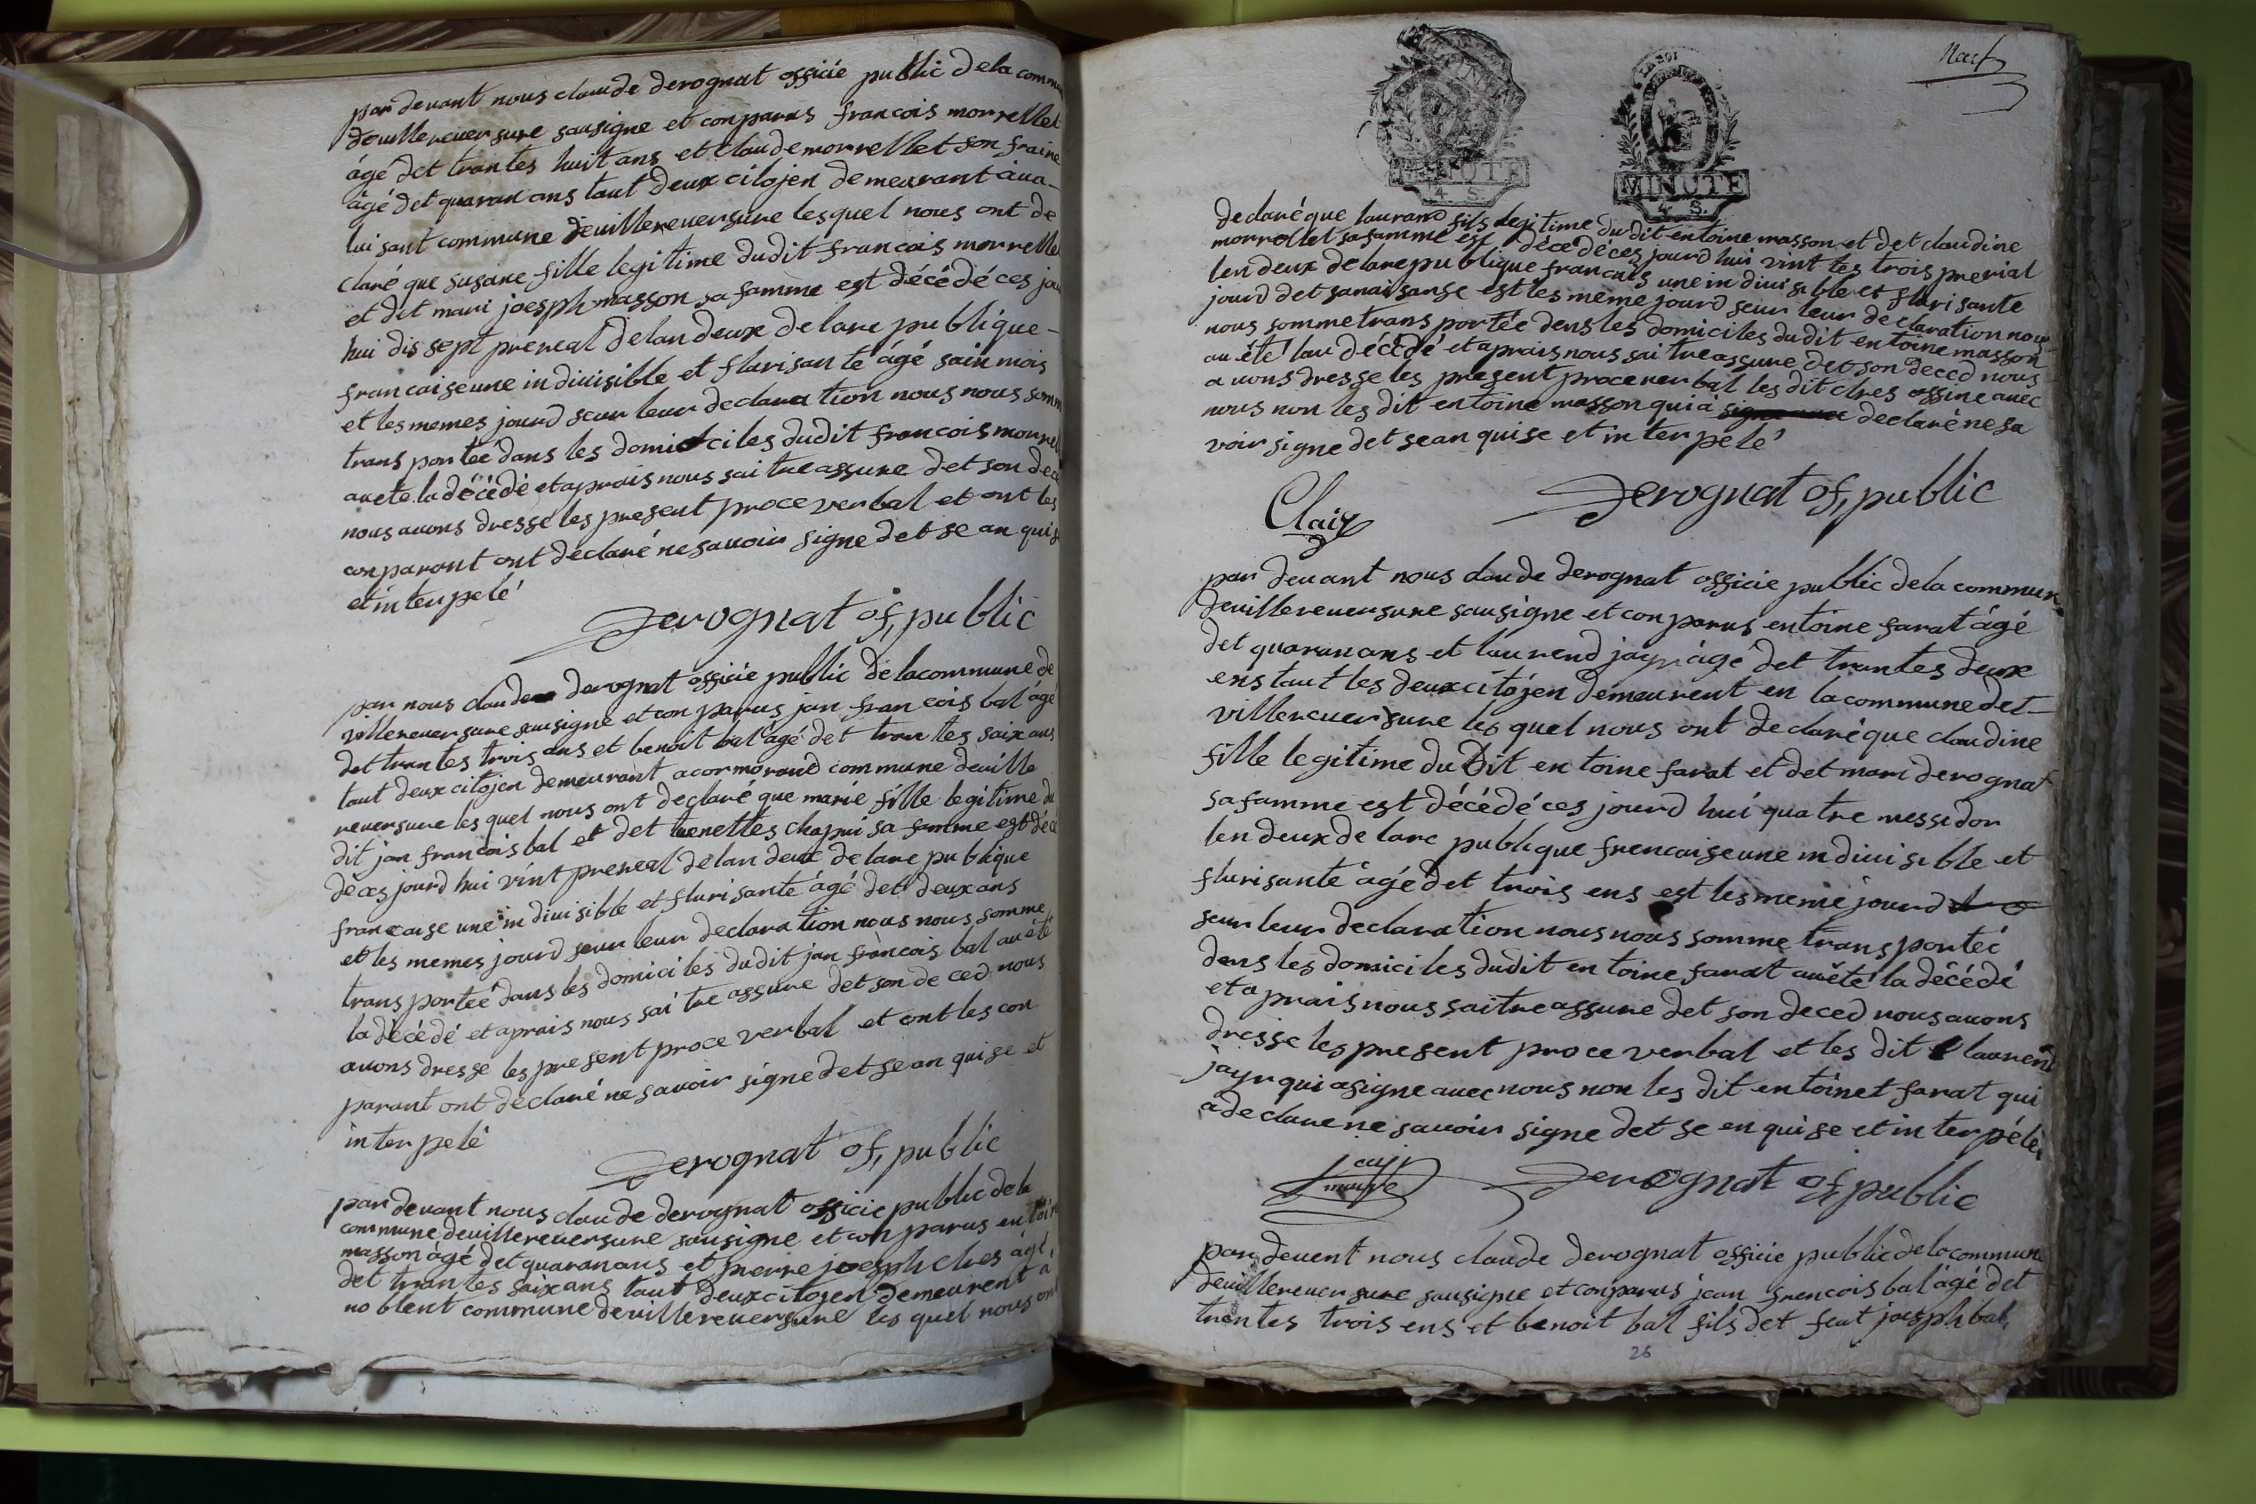 par devant nous claude derognat officie public dela commu
devillereversure sousigne et conparus francois morrellet
âgé det trantes huit ans et claude morrellet son fraire
âgé det quaran ans taut deux citojen demeurant àva-
luisant commune devillereversure lesquel nous ont de
claré que susane fille legitime dudit francois morrelle
et det mari joesph masson sa famme est décédé ces jou
hui dis sept prereal delan deux delare publique-
francaise une indivisible et flurisante âgé sain mois
et les memes jourd seur leur declaration nous nous somm
trans portée dans les domicciles dudit francois morrel
auete la décédé et aprais nous saitre assure det son dece
nous avons dresse les present proce verbal et ont les
conparant ont déclaré ne savoir signe det se an quis
et interpelé
Derognat of, public
par nous claude derognat officie public de lacommune de
villereversure sousigne et conparus jan francois bal âgé
det trantes trois ans et benoit bal âgé det trantes saix ans
taut deux citojen demeurant a cormorand commune deville
reversure les quel nous ont declaré que marie fille legitime du
dit jan francois bal et det tienettes chapui sa famme est déce
dé ces jourd hui vint prereal delan deux delare publique
francaise une indivisible et flurisante âgé det deux ans
et les memes jourd seur leur declaration nous nous somme
trans portée dans les domiciles dudit jan francois bal auété
la décédé et aprais nous saitre assure det son deced nous
avons dresse les present proce verbal et ont les con
parant ont déclaré ne savoir signe det se an quise et
interpelé
Derognat of, public
par devant nous claude derognat officie public dela
commune devillereversure sousigne et conparus entoin
masson âgé det quaran ans et pierre joesph clres âgé
det trantes saix ans taut deux citojen demeurent a
noblent commune devillereversure les quel nous ont
MINUTE
4 S.
LA LOI
MINUTE
4 S.
declaré que laurand fils legitime dudit entoine masson et det claudine
morrellet sa famme est décédé ces jourd hui vint tes trois prerial
len deux delare publique francais une indivisible et flurisante
jourd det sa naisanse est les meme jourd seur leur declaration nous
nous somme trans portée dens les domiciles dudit entoine masson
au été lau décédé et aprais nous saitre assure det son deced nous
avons dresse les present proce verbal les dit clres ossine avec
nous non les dit entoine masson qui à declaré ne sa
voir signe det se an quise et interpelé
Derognat of, public
par devant nous claude derognat officie public dela commun
devillereversure sousigne et conparus entoine farat âgé
det quaran ans et laurend jayr âgé det trantes deux
ens taut les deux citojen demeurent en la commune det-
villereversure les quel nous ont declaré que claudine
fille legitime du dit entoine farat et det mari derognat
sa famme est décédé ces jourd hui quatre messidor
len deux de lare publique frencaise une indivisible et
flurisante âgé det trois ens est les meme jourd
seur leur declaration nous nous somme trans portée
dens les domiciles dudit entoine farat auété la décédé
et aprais nous saitre assure det son deced nous avons
dresse les present proce verbal et les dit laurend
jayr qui a signe avec nous non les dit entoinet farat qui
a declare ne savoir signe det se en quise et interpélé
Derognat of, public
par devent nous claude derognat officie public dela commun
devillereversure sousigne et conparus jean frencois bal âgé det
trentes trois ens et benoit bal fils det feat joesph bal
26